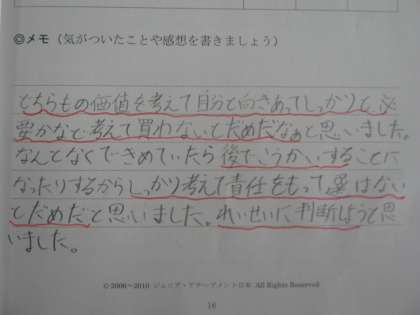 ◎メモ（気がついたことや感想を書きましょう）
どちらもの価値を考えて自分と向きあってしっかりと、必
要かなど考えて買わないとだめだなぁと思いました。
なんとなくできめていたら後でこうかいすることに
なったりするからしっかり考えて責任をもって選ばない
とだめだと思いました。れいせいに判断しようと思
いました。
© 2006〜2010 ジュニア・アチーブメント日本 All Rights Reserved
16